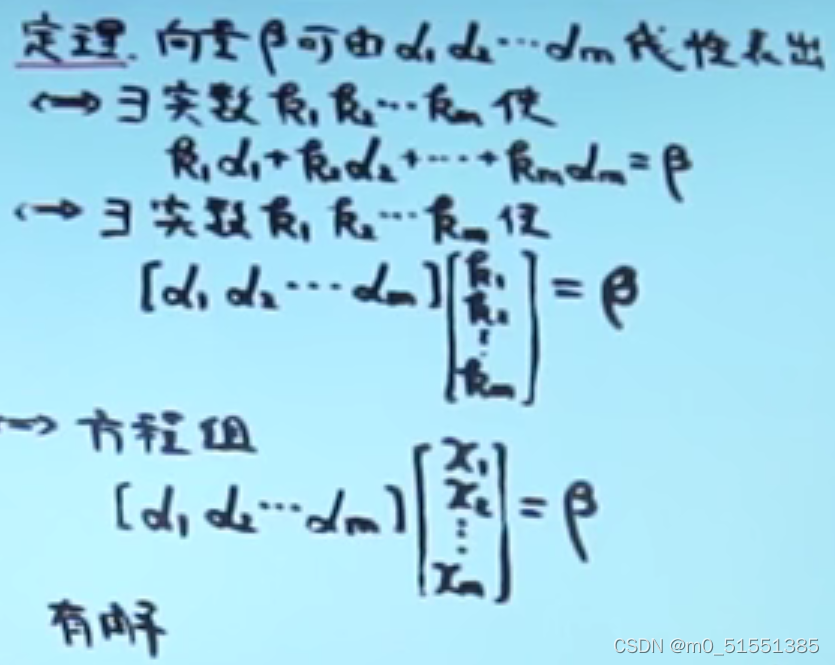 定理. 向量β可由α₁ α₂ ⋯ αₘ 线性表出
⟺ ∃ 实数 k₁ k₂ ⋯ kₘ 使
k₁α₁ + k₂α₂ + ⋯ + kₘαₘ = β
⟺ ∃ 实数 k₁ k₂ ⋯ kₘ 使
[α₁ α₂ ⋯ αₘ] [k₁ k₂ ⋮ kₘ] = β
⟺ 方程组
[α₁ α₂ ⋯ αₘ] [x₁ x₂ ⋮ xₘ] = β
有解
CSDN @m0_51551385